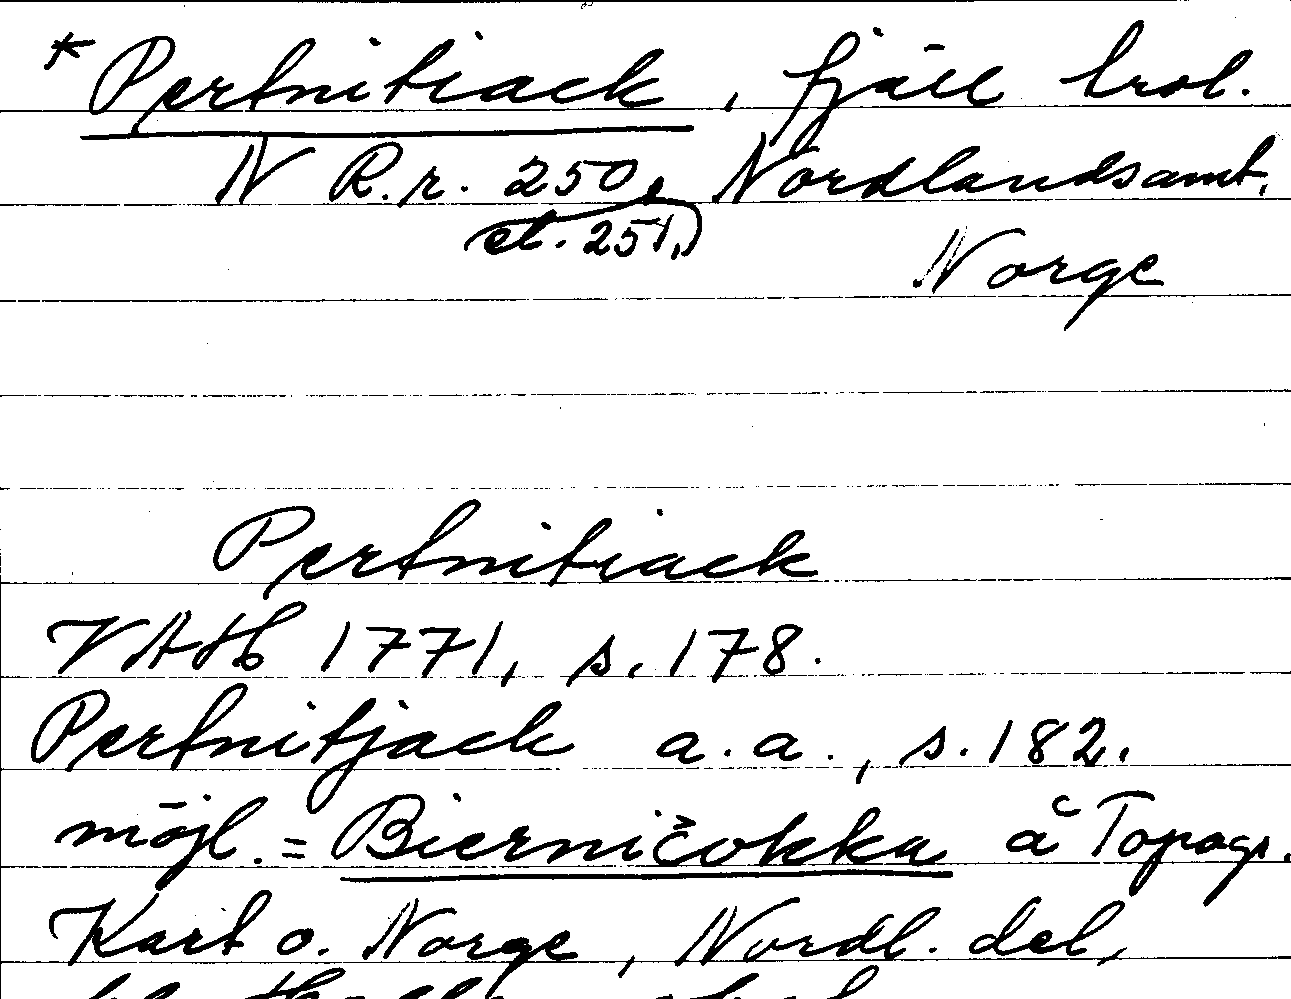 * Pertnitiack, fjäll trol.
N R.r. 250, Nordlandsamt,
et. 251,)
Norge
Pertnitiack
VAH 1771, s. 178.
Pertnitjack a.a., s. 182.
möjl. = Bierničokka å Topogr.
Kart o. Norge, Nordl. del,